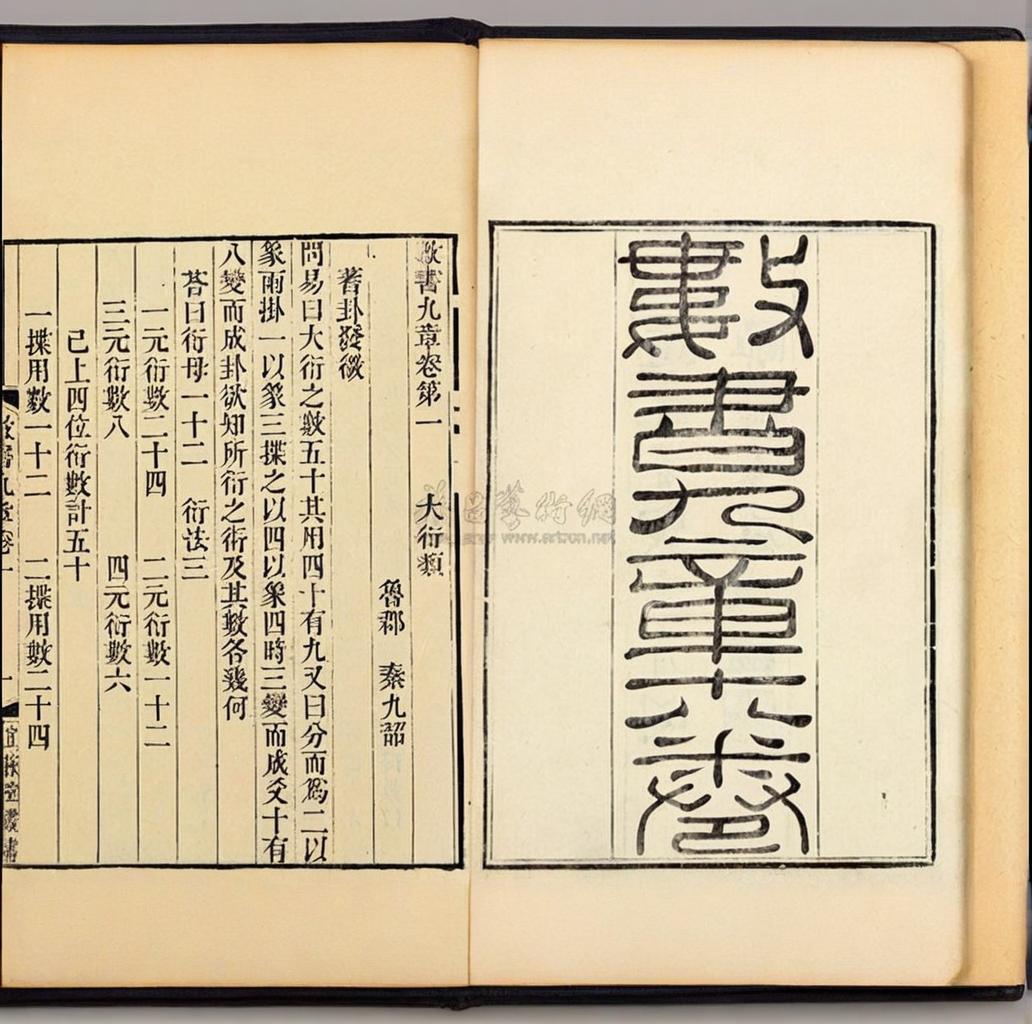 數書九章十八卷
數書九章卷第一 大衍類
魯郡 秦九韶
蓍卦發微
問易曰大衍之數五十其用四十有九又曰分而爲二以
象兩掛一以象三揲之以四以象四時三變而成爻十有
八變而成卦欲知所衍之術及其數各幾何
荅曰衍母一十二 衍法三
一元衍數二十四 二元衍數一十二
三元衍數八 四元衍數六
已上四位衍數計五十
一揲用數一十二 二揲用數二十四
數書九章卷一
一
宜稼堂叢書
www.artron.net